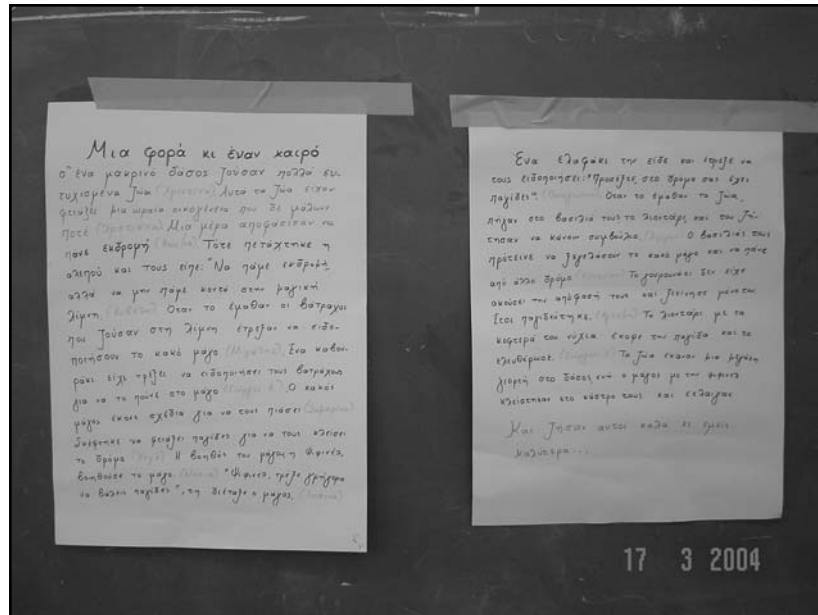 Μια φορά κι έναν καιρό
σ' ένα μακρινό δάσος ζούσαν πολλά ευ-
τυχισμένα ζώα (Χριστίνα) Αυτά τα ζώα είχαν
φτιάξει μια ωραία οικογένεια που δε μάλωνε
ποτέ (Χριστίνα) Μια μέρα αποφάσισαν να
πάνε εκδρομή Τότε πετάχτηκε η
αλεπού και τους είπε: "Να πάμε εκδρομή,
αλλά να μην πάμε κοντά στην μαγική
λίμνη. Όταν το έμαθαν οι βάτραχοι
που ζούσαν στη λίμνη έτρεξαν να ειδο-
ποιήσουν το κακό μάγο Ένα καβου-
ράκι είχε τρέξει να ειδοποιήσει τους βατράχους
για να το πούνε στο μάγο Ο κακός
μάγος έκανε σχέδια για να τους πιάσει
Σκέφτηκε να φτιάξει παγίδες για να τους κλείσει
το δρόμο Η βοηθός του μάγου, η Φιφινέλ,
βοηθούσε το μάγο. "Φιφινέλ, τρέξε γρήγορα
να βάλεις παγίδες", τη διέταξε ο μάγος.
Ένα ελαφάκι την είδε και έτρεξε να
τους ειδοποιήσει: "Προσέξτε, στο δρόμο σας έχει
παγίδες" Όταν το έμαθαν τα ζώα,
πήγαν στο βασιλιά τους το λιοντάρι και του ζή-
τησαν να κάνουν συμβούλιο. Ο βασιλιάς τους
πρότεινε να ξεγελάσουν το κακό μάγο και να πάνε
από άλλο δρόμο Το γουρουνάκι δεν είχε
ακούσει την απόφασή τους και ξεκίνησε μόνο του
Έτσι παγιδεύτηκε. Το λιοντάρι με τα
κοφτερά του νύχια έκοψε την παγίδα και το
ελευθέρωσε. Τα ζώα έκαναν μια μεγάλη
γιορτή στο δάσος ενώ ο μάγος με την Φιφινέλ
κλείστηκαν στο κάστρο τους και έκλαιγαν
Και ζήσαν αυτοί καλά κι εμείς
καλύτερα...
17 3 2004